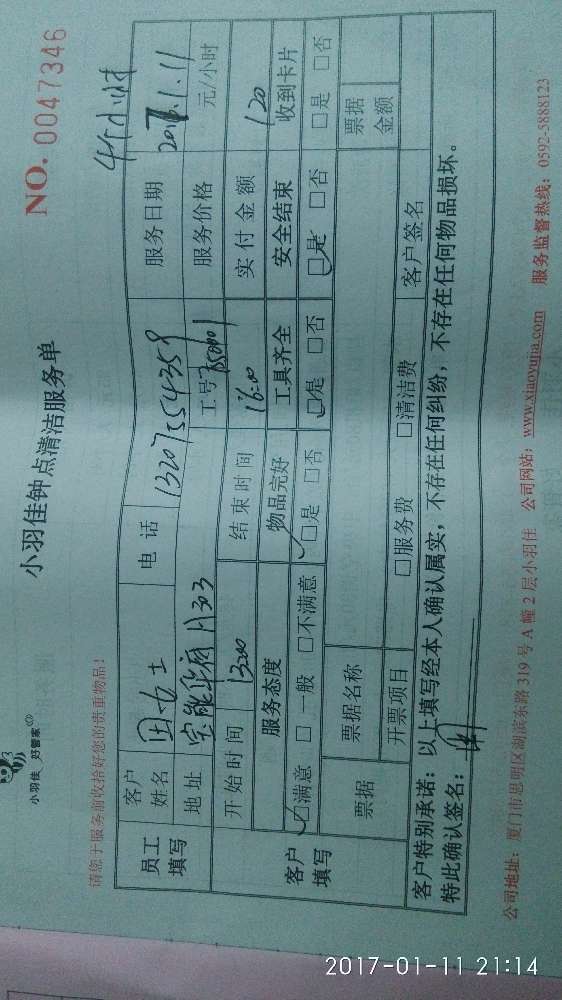 小羽佳 好管家
小羽佳钟点清洁服务单
NO. 0047346
请您于服务前收拾好您的贵重物品!
4个小时
员工填写
客户姓名 田女士 电话 13207554359 服务日期 2017.1.11
地址 宝能华府 A303 工号 服务价格 元/小时
开始时间 12:00 结束时间 16:00 实付金额 120
客户填写
服务态度 物品完好 工具齐全 安全结束 收到卡片
☑满意 □一般 □不满意 ☑是 □否 ☑是 □否 ☑是 □否 □是 □否
票据 票据名称 票据金额
开票项目 □服务费 □清洁费 客户签名
客户特别承诺: 以上填写经本人确认属实,不存在任何纠纷,不存在任何物品损坏。
特此确认签名:
公司地址: 厦门市思明区湖滨东路319号A幢2层小羽佳 公司网站: www.xiaoyujia.com 服务监督热线: 0592-5888123
2017-01-11 21:14